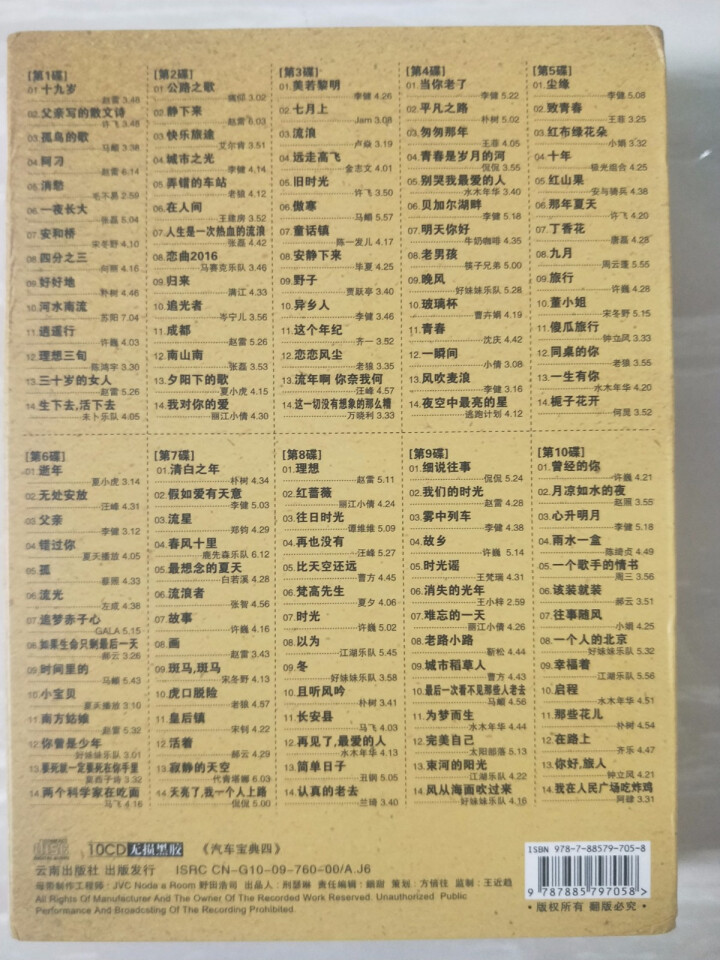 [第1碟]
01.十九岁
赵雷 3.48
02.父亲写的散文诗
许飞 3.48
03.孤鸟的歌
马頔 3.38
04.阿刁
赵雷 6.14
05.消愁
毛不易 2.59
06.一夜长大
张磊 5.04
07.安和桥
宋冬野 4.10
08.四分之三
向群 4.16
09.好好地
朴树 4.46
10.河水南流
苏阳 7.04
11.逍遥行
许巍 4.03
12.理想三旬
陈鸿宇 3.30
13.三十岁的女人
赵雷 5.26
14.生下去,活下去
未卜乐队 4.05
[第2碟]
01.公路之歌
痛仰 3.02
02.静下来
赵雷 6.03
03.快乐旅途
艾尔肯 3.51
04.城市之光
李健 4.14
05.弄错的车站
老狼 4.12
06.在人间
王建房 3.52
07.人生是一次热血的流浪
张磊 4.42
08.恋曲2016
马赛克乐队 3.46
09.归来
满江 4.33
10.追光者
岑宁儿 3.56
11.成都
赵雷 5.26
12.南山南
张磊 3.53
13.夕阳下的歌
夏小虎 4.15
14.我对你的爱
丽江小倩 4.30
[第3碟]
01.美若黎明
李健 4.26
02.七月上
Jam 3.08
03.流浪
卢焱 3.19
04.远走高飞
金志文 4.01
05.旧时光
许飞 3.50
06.傲寒
马頔 5.57
07.童话镇
陈一发儿 4.17
08.安静下来
毕夏 4.25
09.野子
贾跃亭 3.40
10.异乡人
李健 3.46
11.这个年纪
齐一 3.52
12.恋恋风尘
老狼 3.35
13.流年啊 你奈我何
汪峰 4.57
14.这一切没有想象的那么糟
万晓利 3.33
[第4碟]
01.当你老了
李健 5.22
02.平凡之路
朴树 5.02
03.匆匆那年
王菲 4.05
04.青春是岁月的河
侃侃 3.55
05.别哭我最爱的人
水木年华 3.40
06.贝加尔湖畔
李健 5.18
07.明天你好
牛奶咖啡 4.35
08.老男孩
筷子兄弟 5.00
09.晚风
好妹妹乐队 5.28
10.玻璃杯
曹卉娟 4.19
11.青春
沈庆 4.42
12.一瞬间
小倩 3.08
13.风吹麦浪
李健 3.16
14.夜空中最亮的星
逃跑计划 4.12
[第5碟]
01.尘缘
李健 5.08
02.致青春
王菲 3.25
03.红布绿花朵
小娟 3.32
04.十年
极光组合 4.25
05.红山果
安与骑兵 4.38
06.那年夏天
许飞 4.20
07.丁香花
唐磊 4.28
08.九月
周云蓬 5.55
09.旅行
许巍 4.28
10.董小姐
宋冬野 5.15
11.傻瓜旅行
钟立风 3.33
12.同桌的你
老狼 3.55
13.一生有你
水木年华 4.20
14.栀子花开
何炅 3.52
[第6碟]
01.逝年
夏小虎 3.14
02.无处安放
汪峰 4.31
03.父亲
李健 3.12
04.错过你
夏天播放 4.05
05.孤
蔡照 4.33
06.流光
左威 4.38
07.追梦赤子心
GALA 5.15
08.如果生命只剩最后一天
郝云 3.26
09.时间里的
马頔 5.43
10.小宝贝
夏天播放 3.10
11.南方姑娘
赵雷 5.32
12.你曾是少年
好妹妹乐队 3.01
13.要死就一定要死在你手里
莫西子诗 3.32
14.两个科学家在吃面
马飞 4.16
[第7碟]
01.清白之年
朴树 4.34
02.假如爱有天意
李健 5.03
03.流星
郑钧 4.29
04.春风十里
鹿先森乐队 6.12
05.最想念的夏天
白若溪 4.28
06.流浪者
张智 4.56
07.故事
许巍 4.16
08.画
赵雷 3.43
09.斑马,斑马
宋冬野 4.13
10.虎口脱险
老狼 4.57
11.皇后镇
宋钊 4.22
12.活着
郝云 4.29
13.寂静的天空
代青塔娜 6.03
14.天亮了,我一个人上路
侃侃 5.00
[第8碟]
01.理想
赵雷 5.11
02.红蔷薇
丽江小倩 4.24
03.往日时光
谭维维 5.09
04.再也没有
汪峰 5.27
05.比天空还远
曹方 4.45
06.梵高先生
夏夕 4.06
07.时光
许巍 5.02
08.以为
江湖乐队 5.45
09.冬
好妹妹乐队 3.58
10.且听风吟
朴树 3.41
11.长安县
马飞 4.03
12.再见了,最爱的人
水木年华 4.13
13.简单日子
丑钢 5.05
14.认真的老去
兰琦 3.40
[第9碟]
01.细说往事
侃侃 5.24
02.我们的时光
赵雷 4.28
03.雾中列车
李健 4.38
04.故乡
许巍 5.14
05.时光谣
王梵瑞 4.31
06.消失的光年
王小梓 2.59
07.难忘的一天
丽江小倩 4.26
08.老路小路
靳松 4.44
09.城市稻草人
曹方 4.43
10.最后一次看不见那些人老去
马頔 4.56
11.为梦而生
水木年华 4.44
12.完美自己
太阳部落 5.13
13.束河的阳光
江湖乐队 4.22
14.风从海面吹过来
好妹妹乐队 4.16
[第10碟]
01.曾经的你
许巍 4.21
02.月凉如水的夜
赵照 3.55
03.心升明月
李健 5.18
04.雨水一盒
陈绮贞 4.49
05.一个歌手的情书
周三 3.56
06.该装就装
郝云 3.51
07.往事随风
小娟 4.25
08.一个人的北京
好妹妹乐队 5.32
09.幸福着
江湖乐队 5.56
10.启程
水木年华 4.51
11.那些花儿
朴树 4.54
12.在路上
齐乐 4.47
13.你好,旅人
钟立风 4.21
14.我在人民广场吃炸鸡
阿肆 3.31
disc 10CD 无损黑胶 《汽车宝典四》
云南出版社 出版发行 ISRC CN-G10-09-760-00/A.J6
母带制作工程师：JVC Node a Room 野田浩司 出品人：刑瑟琳 责任编辑：颜甜 策划：方惜往 监制：王近趋
All Rights Of Manufacturer And The Owner Of The Recorded Work Reserved. Unauthorized Public
Performance And Broadcsting Of The Recording Prohibited.
ISBN 978-7-88579-705-8
9 787885 797058 >
·版权所有 翻版必究·